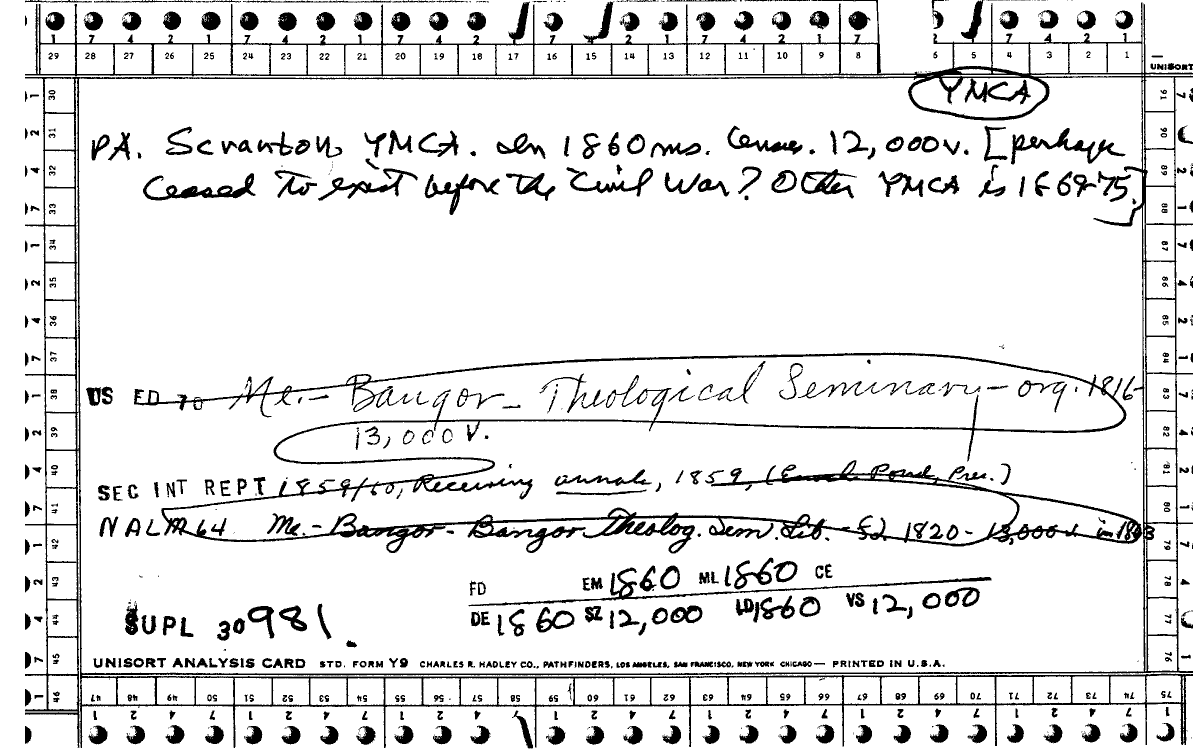 29 28 27 26 25 24 23 22 21 20 19 18 17 16 15 14 13 12 11 10 9 8 6 5 4 3 2 1
UNISORT
YMCA
PA. Scranton YMCA. In 1860 ms. Census. 12,000v. [perhaps
ceased to exist before the Civil War? Other YMCA is 1869-75.]
US ED 70 Me. - Bangor - Theological Seminary - org. 1816-
13,000 V.
SEC INT REPT 1859/60, Receiving annals, 1859, (Enoch Pond, Pres.)
NALM 64 Me. - Bangor - Bangor Theolog. Sem. Lib. - fd 1820 - 13,000 v. in 1863
FD EM 1860 ML 1860 CE
DE 1860 SZ 12,000 LD 1860 VS 12,000
SUPL 30981.
UNISORT ANALYSIS CARD STD. FORM Y9 CHARLES R. HADLEY CO., PATHFINDERS, LOS ANGELES, SAN FRANCISCO, NEW YORK CHICAGO — PRINTED IN U.S.A.
47 48 49 50 51 52 53 54 55 56 57 58 59 60 61 62 63 64 65 66 67 68 69 70 71 72 73 74 75